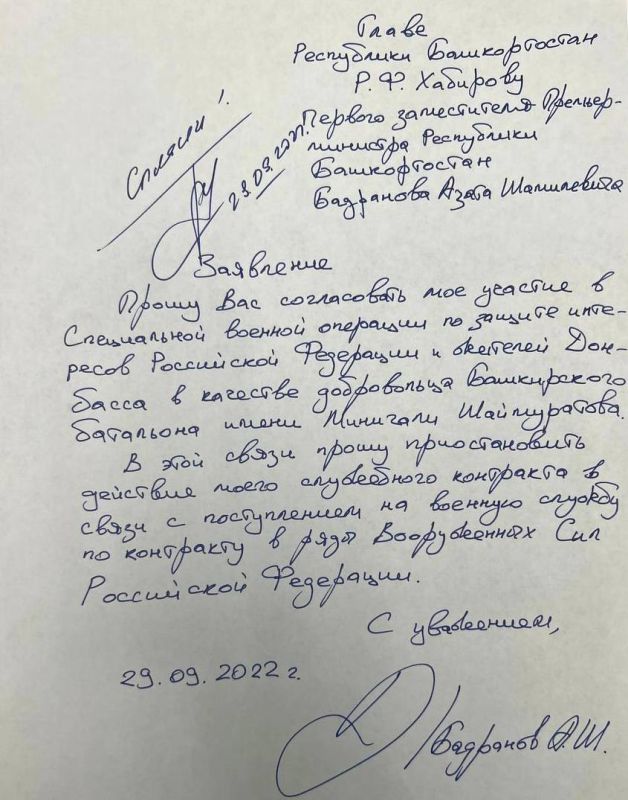 Главе
Республики Башкортостан
Р.Ф. Хабирову
Первого заместителя Премьер-
министра Республики
Башкортостан
Бадранова Азата Шамилевича
Согласен!
29.09.2022г.
Заявление
Прошу Вас согласовать мое участие в
Специальной военной операции по защите инте-
ресов Российской Федерации и жителей Дон-
басса в качестве добровольца Башкирского
батальона имени Минигали Шаймуратова.
В этой связи прошу приостановить
действие моего служебного контракта в
связи с поступлением на военную службу
по контракту в ряды Вооруженных Сил
Российской Федерации.
С уважением,
29.09.2022 г.
/Бадранов А.Ш.